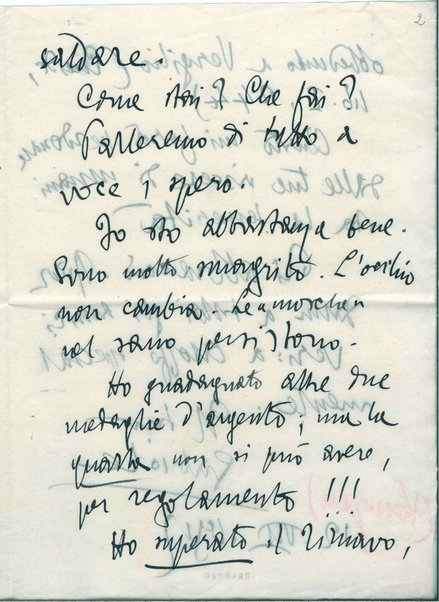 2
saldare.
Come stai? Che fai?
Parleremo di tutto a
voce, spero.
Io sto abbastanza bene.
Sono molto smagrito. L'occhio
non cambia. Le «mosche»
nel sano persistono.
Ho guadagnato altre due
medaglie d'argento; ma la
quarta non si può avere,
per regolamento!!!
Ho superato il Timavo,